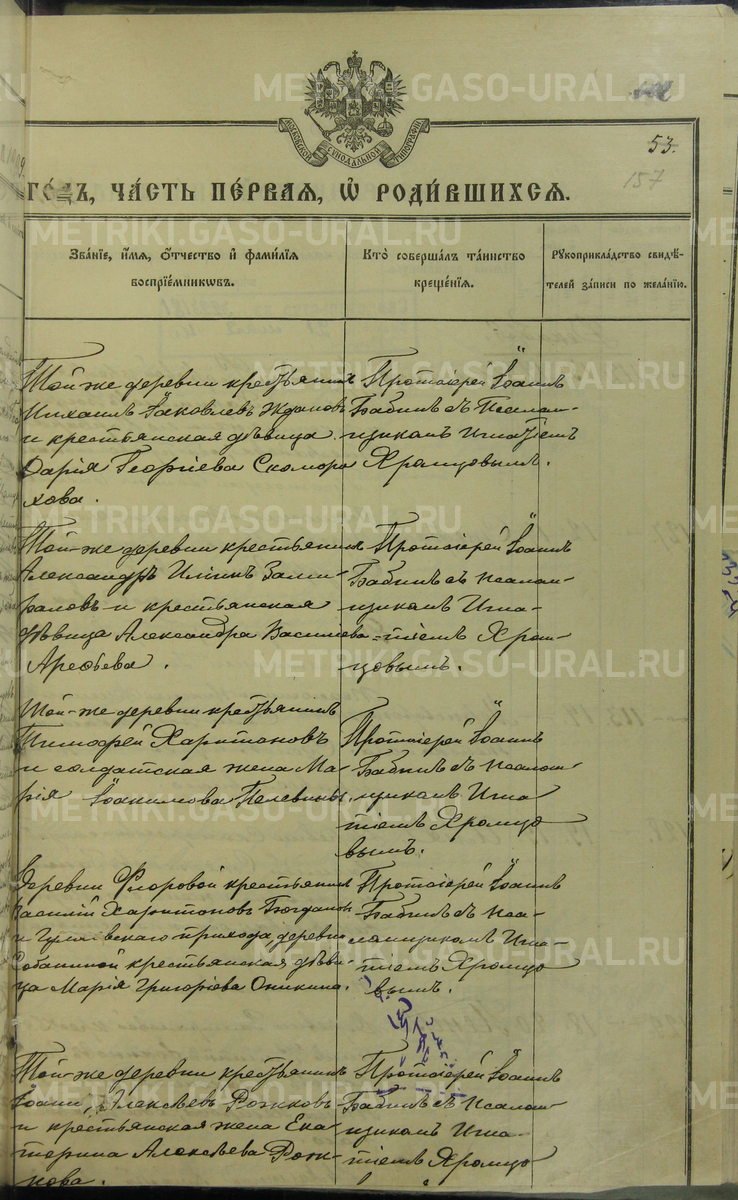 METRIKI.GASO-URAL.RU
МОСКОВСКОЙ СѴНОДАЛЬНОЙ ТИПОГРАФІИ
53.
157
ГО́ДЪ, ЧА́СТЬ ПЕ́РВАЯ, Ѡ҆ РОДИ́ВШИХСЯ.
METRIKI.GASO-URAL.RU
Зва́нїе, и҆́мя, ѻ҆́тчество и҆ фами́лїя
воспрїе́мникѡвъ.
Кто̀ соверша́лъ та́инство
креще́нїя.
Рꙋкоприкла́дство свидѣ́-
телей за́писи по жела́нїю.
Той-же деревни крестьянинъ
Михаилъ Іаковлевъ Ждановъ
и крестьянская дѣвица
Дарія Георгіева Скоморо
хова.
Протоіерей Іоаннъ
Бабинъ съ Псалом-
щикомъ Игнатіемъ
Хромцовымъ.
METRIKI.GASO-URAL.RU
Той-же деревни крестьянинъ
Александръ Ильинъ
и крестьянская
дѣвица Александра Василіева
Арефьева.
Протоіерей Іоаннъ
Бабинъ съ псалом-
щикомъ Игна-
тіемъ Хром-
цовымъ.
METRIKI.GASO-URAL.RU
Той-же деревни крестьянинъ
Тимофей Харитоновъ
и солдатская жена Ма-
рія Іоакимова
Протоіерей Іоаннъ
Бабинъ съ Псалом-
щикомъ Игна
тіемъ Хромцо
вымъ.
METRIKI.GASO-URAL.RU
Деревни Фроровой крестьянинъ
Василій Харитоновъ Богдановъ
и прихода деревни
Собакиной крестьянская дѣви-
ца Марія Григоріева Оникина.
Протоіерей Іоаннъ
Бабинъ съ Пса-
ломщикомъ Игна-
тіемъ Хромцо
вымъ.
METRIKI.GASO-URAL.RU
Той-же деревни крестьянинъ
Іоаннъ Алексѣевъ Рожковъ
и крестьянская жена Ека-
терина Алексѣева Рож-
кова.
Протоіерей Іоаннъ
Бабинъ съ Псалом-
щикомъ Игна-
тіемъ Хромцо
METRIKI.GASO-URAL.RU